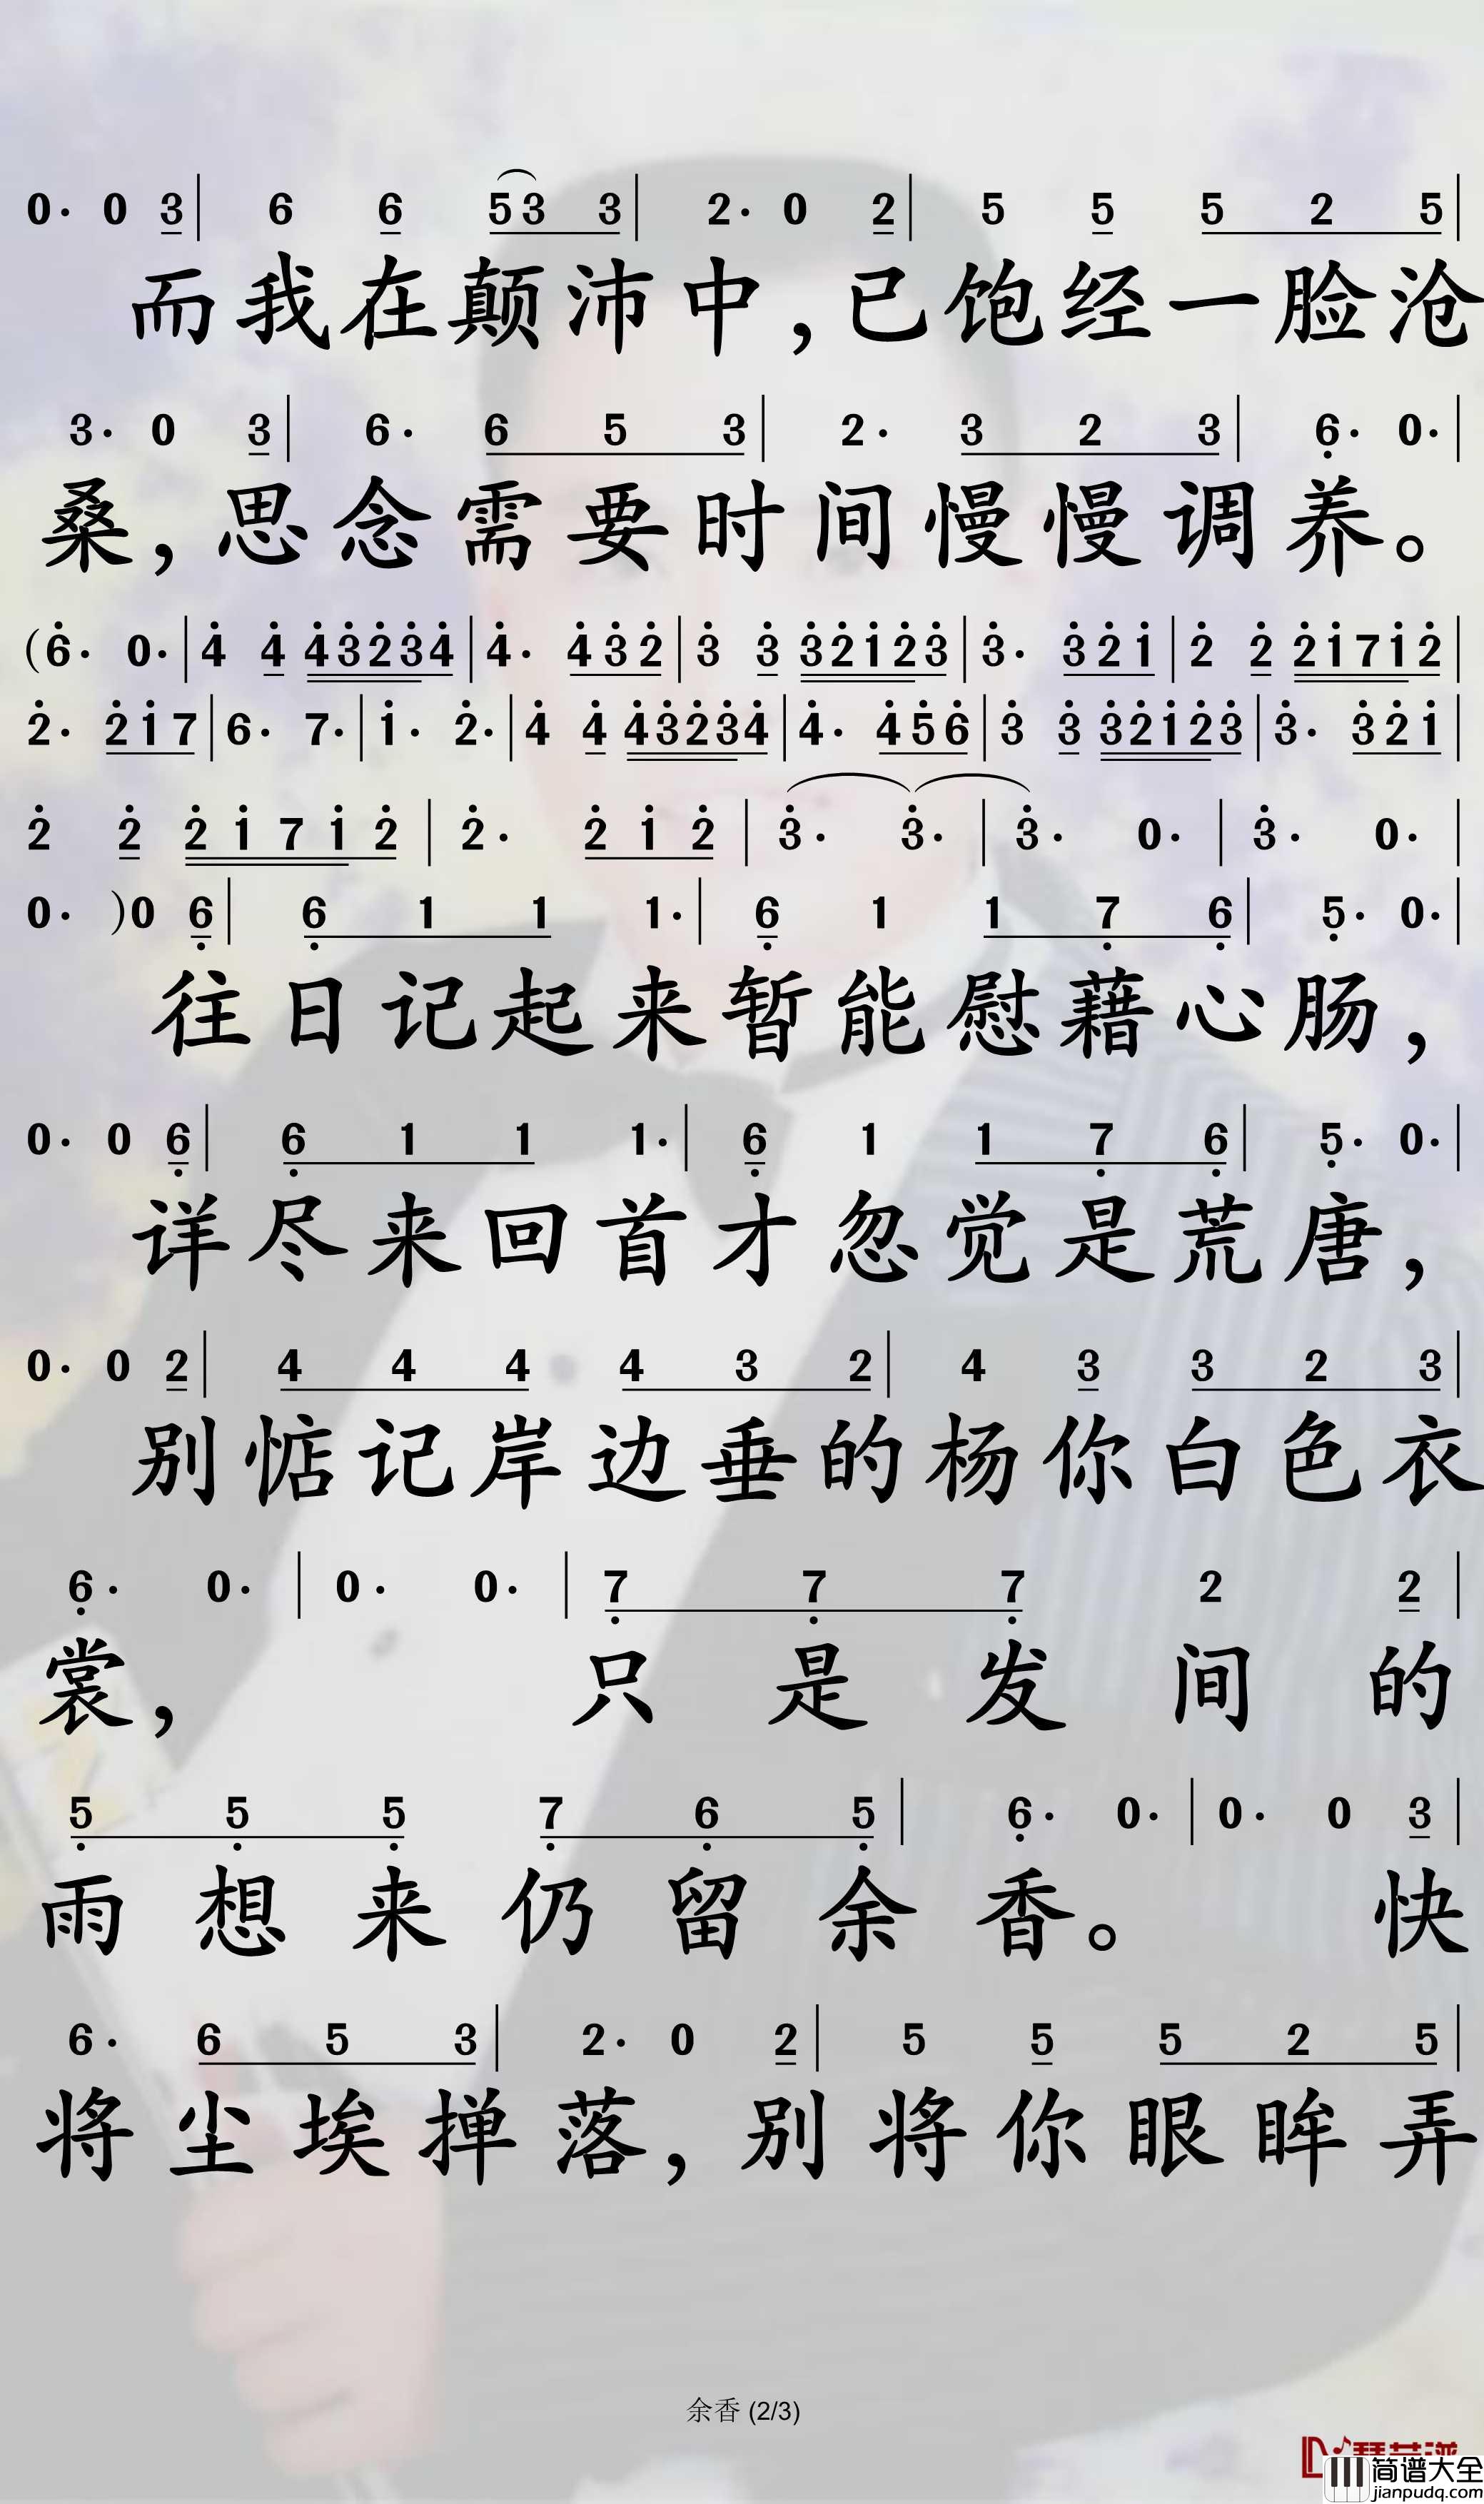 0· 0 3 | 6 6 5 3 3 | 2· 0 2 | 5 5 5 2 5 |
而我在颠沛中，已饱经一脸沧
3· 0 3 | 6· 6 5 3 | 2· 3 2 3 | 6· 0· |
桑，思念需要时间慢慢调养。
(6· 0· | 4 4 4 3 2 3 4 | 4· 4 3 2 | 3 3 3 2 1 2 3 | 3· 3 2 1 | 2 2 2 1 7 1 2 |
2· 2 1 7 | 6· 7· | 1· 2· | 4 4 4 3 2 3 4 | 4· 4 5 6 | 3 3 3 2 1 2 3 | 3· 3 2 1 |
2 2 2 1 7 1 2 | 2· 2 1 2 | 3· 3· | 3· 0· | 3· 0· |
0· )0 6 | 6 1 1 1· | 6 1 1 7 6 | 5· 0· |
往日记起来暂能慰藉心肠，
0· 0 6 | 6 1 1 1· | 6 1 1 7 6 | 5· 0· |
详尽来回首才忽觉是荒唐，
0· 0 2 | 4 4 4 4 3 2 | 4 3 3 2 3 |
别惦记岸边垂的杨你白色衣
6· 0· | 0· 0· | 7 7 7 2 2 |
裳，只是发间的
5 5 5 7 6 5 | 6· 0· | 0· 0 3 |
雨想来仍留余香。快
6· 6 5 3 | 2· 0 2 | 5 5 5 2 5 |
将尘埃掸落，别将你眼眸弄
余香 (2/3)
简谱大全
jianpudq.com